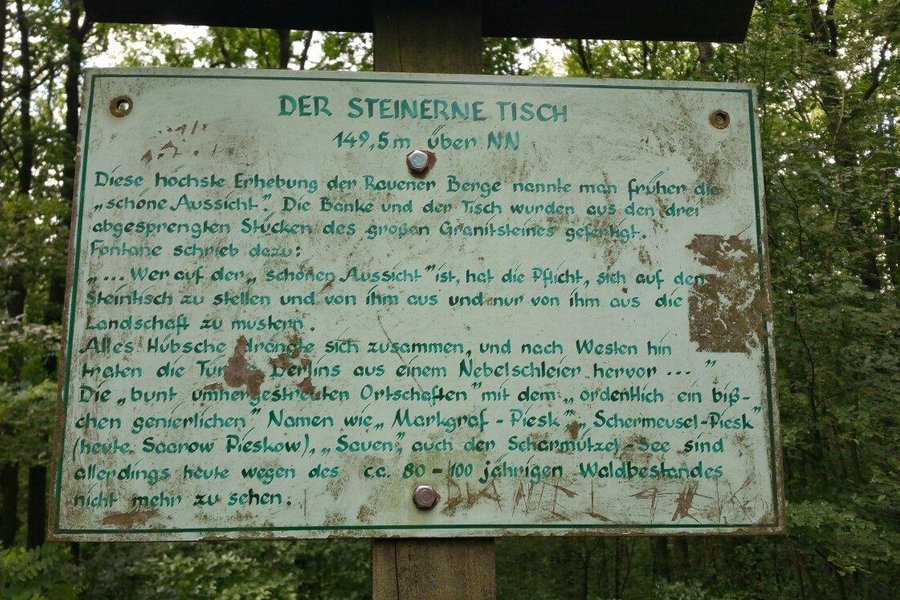 DER STEINERNE TISCH
149,5 m über NN
Diese höchste Erhebung der Rauener Berge nannte man früher die
„schöne Aussicht". Die Bänke und der Tisch wurden aus den drei
abgesprengten Stücken des großen Granitsteines gefertigt.
Fontane schrieb dazu:
„... Wer auf der „schönen Aussicht" ist, hat die Pflicht, sich auf den
Steintisch zu stellen und von ihm aus und nur von ihm aus die
Landschaft zu mustern.
Alles Hübsche drängte sich zusammen, und nach Westen hin
traten die Türme Berlins aus einem Nebelschleier hervor ... "
Die „bunt umhergestreuten Ortschaften" mit dem „ordentlich ein biß-
chen genierlichen" Namen wie „Markgraf - Piesk", „Schermeusel-Piesk"
(heute Saarow Pieskow), „Sauen", auch der Scharmützel See sind
allerdings heute wegen des ca. 80 - 100 jährigen Waldbestandes
nicht mehr zu sehen.